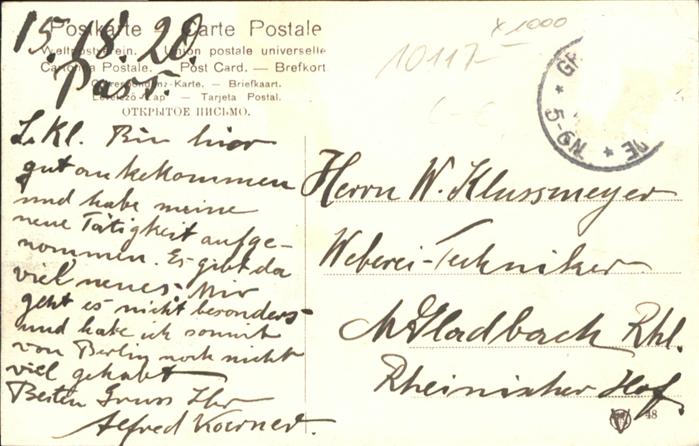 Postkarte — Carte Postale
Weltpostverein. — Union postale universelle
Cartolina Postale. — Post Card. — Brefkort
Correspondenz-Karte. — Briefkaart.
Levelező-Lap — Tarjeta Postal.
ОТКРЫТОЕ ПИСЬМО.
15.8.20.
L. Kl. Bin hier
gut ankekommen
und habe meine
neue Tätigkeit aufge-
nommen. Es gibt da
viel neues. Mir
geht es nicht besonders
und habe ich somit
von Berlin noch nicht
viel gehabt
Besten Gruss Ihr
Alfred Koerner.
x 1000
10117-
5-6N
Herrn W. Klussmeyer
Weberei-Techniker
M Gladbach Rhl.
Rheinischer Hof.
48